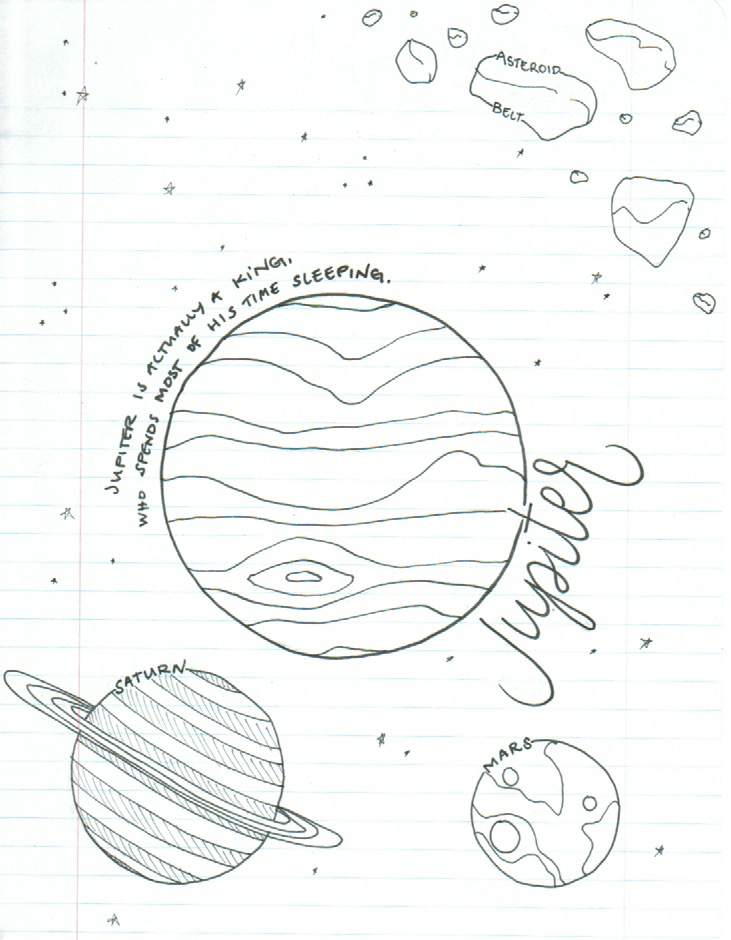 ASTEROID
BELT
JUPITER IS ACTUALLY A KING,
WHO SPENDS MOST OF HIS TIME SLEEPING.
Jupiter
SATURN
MARS